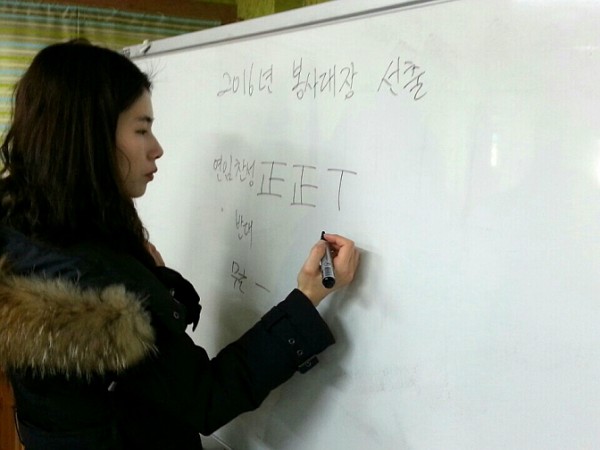 2016년 봉사대장 선출
연임찬성 正正丅
반대
무효 一